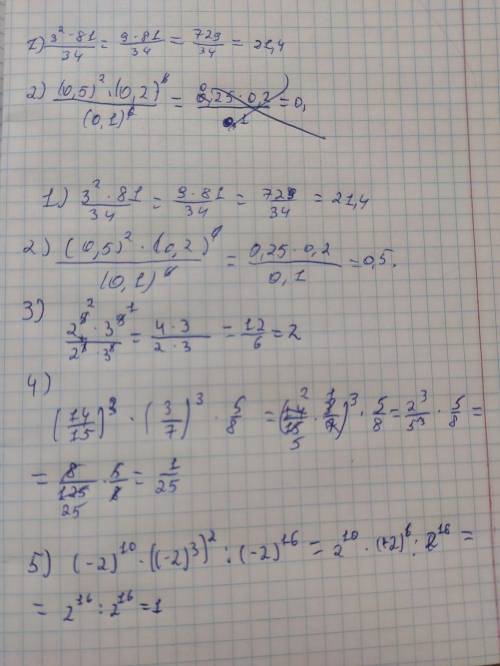 1) 3² · 81 / 34 = 9 · 81 / 34 = 729 / 34 = 21,4
2) (0,5)² · (0,2)⁶ / (0,1)⁶ = 0,25 · 0,2 / 0,1 = 0,
1) 3² · 81 / 34 = 9 · 81 / 34 = 729 / 34 = 21,4
2) (0,5)² · (0,2) / (0,1) = 0,25 · 0,2 / 0,1 = 0,5.
3)
2² · 3¹ / 2 · 3 = 4 · 3 / 2 · 3 = 12 / 6 = 2
4)
(14/15)³ · (3/7)³ · 5/8 = (14/15 · 3/7)³ · 5/8 = 2³/5³ · 5/8 =
= 8/125 · 5/8 = 1/25
5) (-2)¹⁰ · ((-2)³)² : (-2)¹⁶ = 2¹⁰ · (-2)⁶ : 2¹⁶ =
= 2¹⁶ : 2¹⁶ = 1